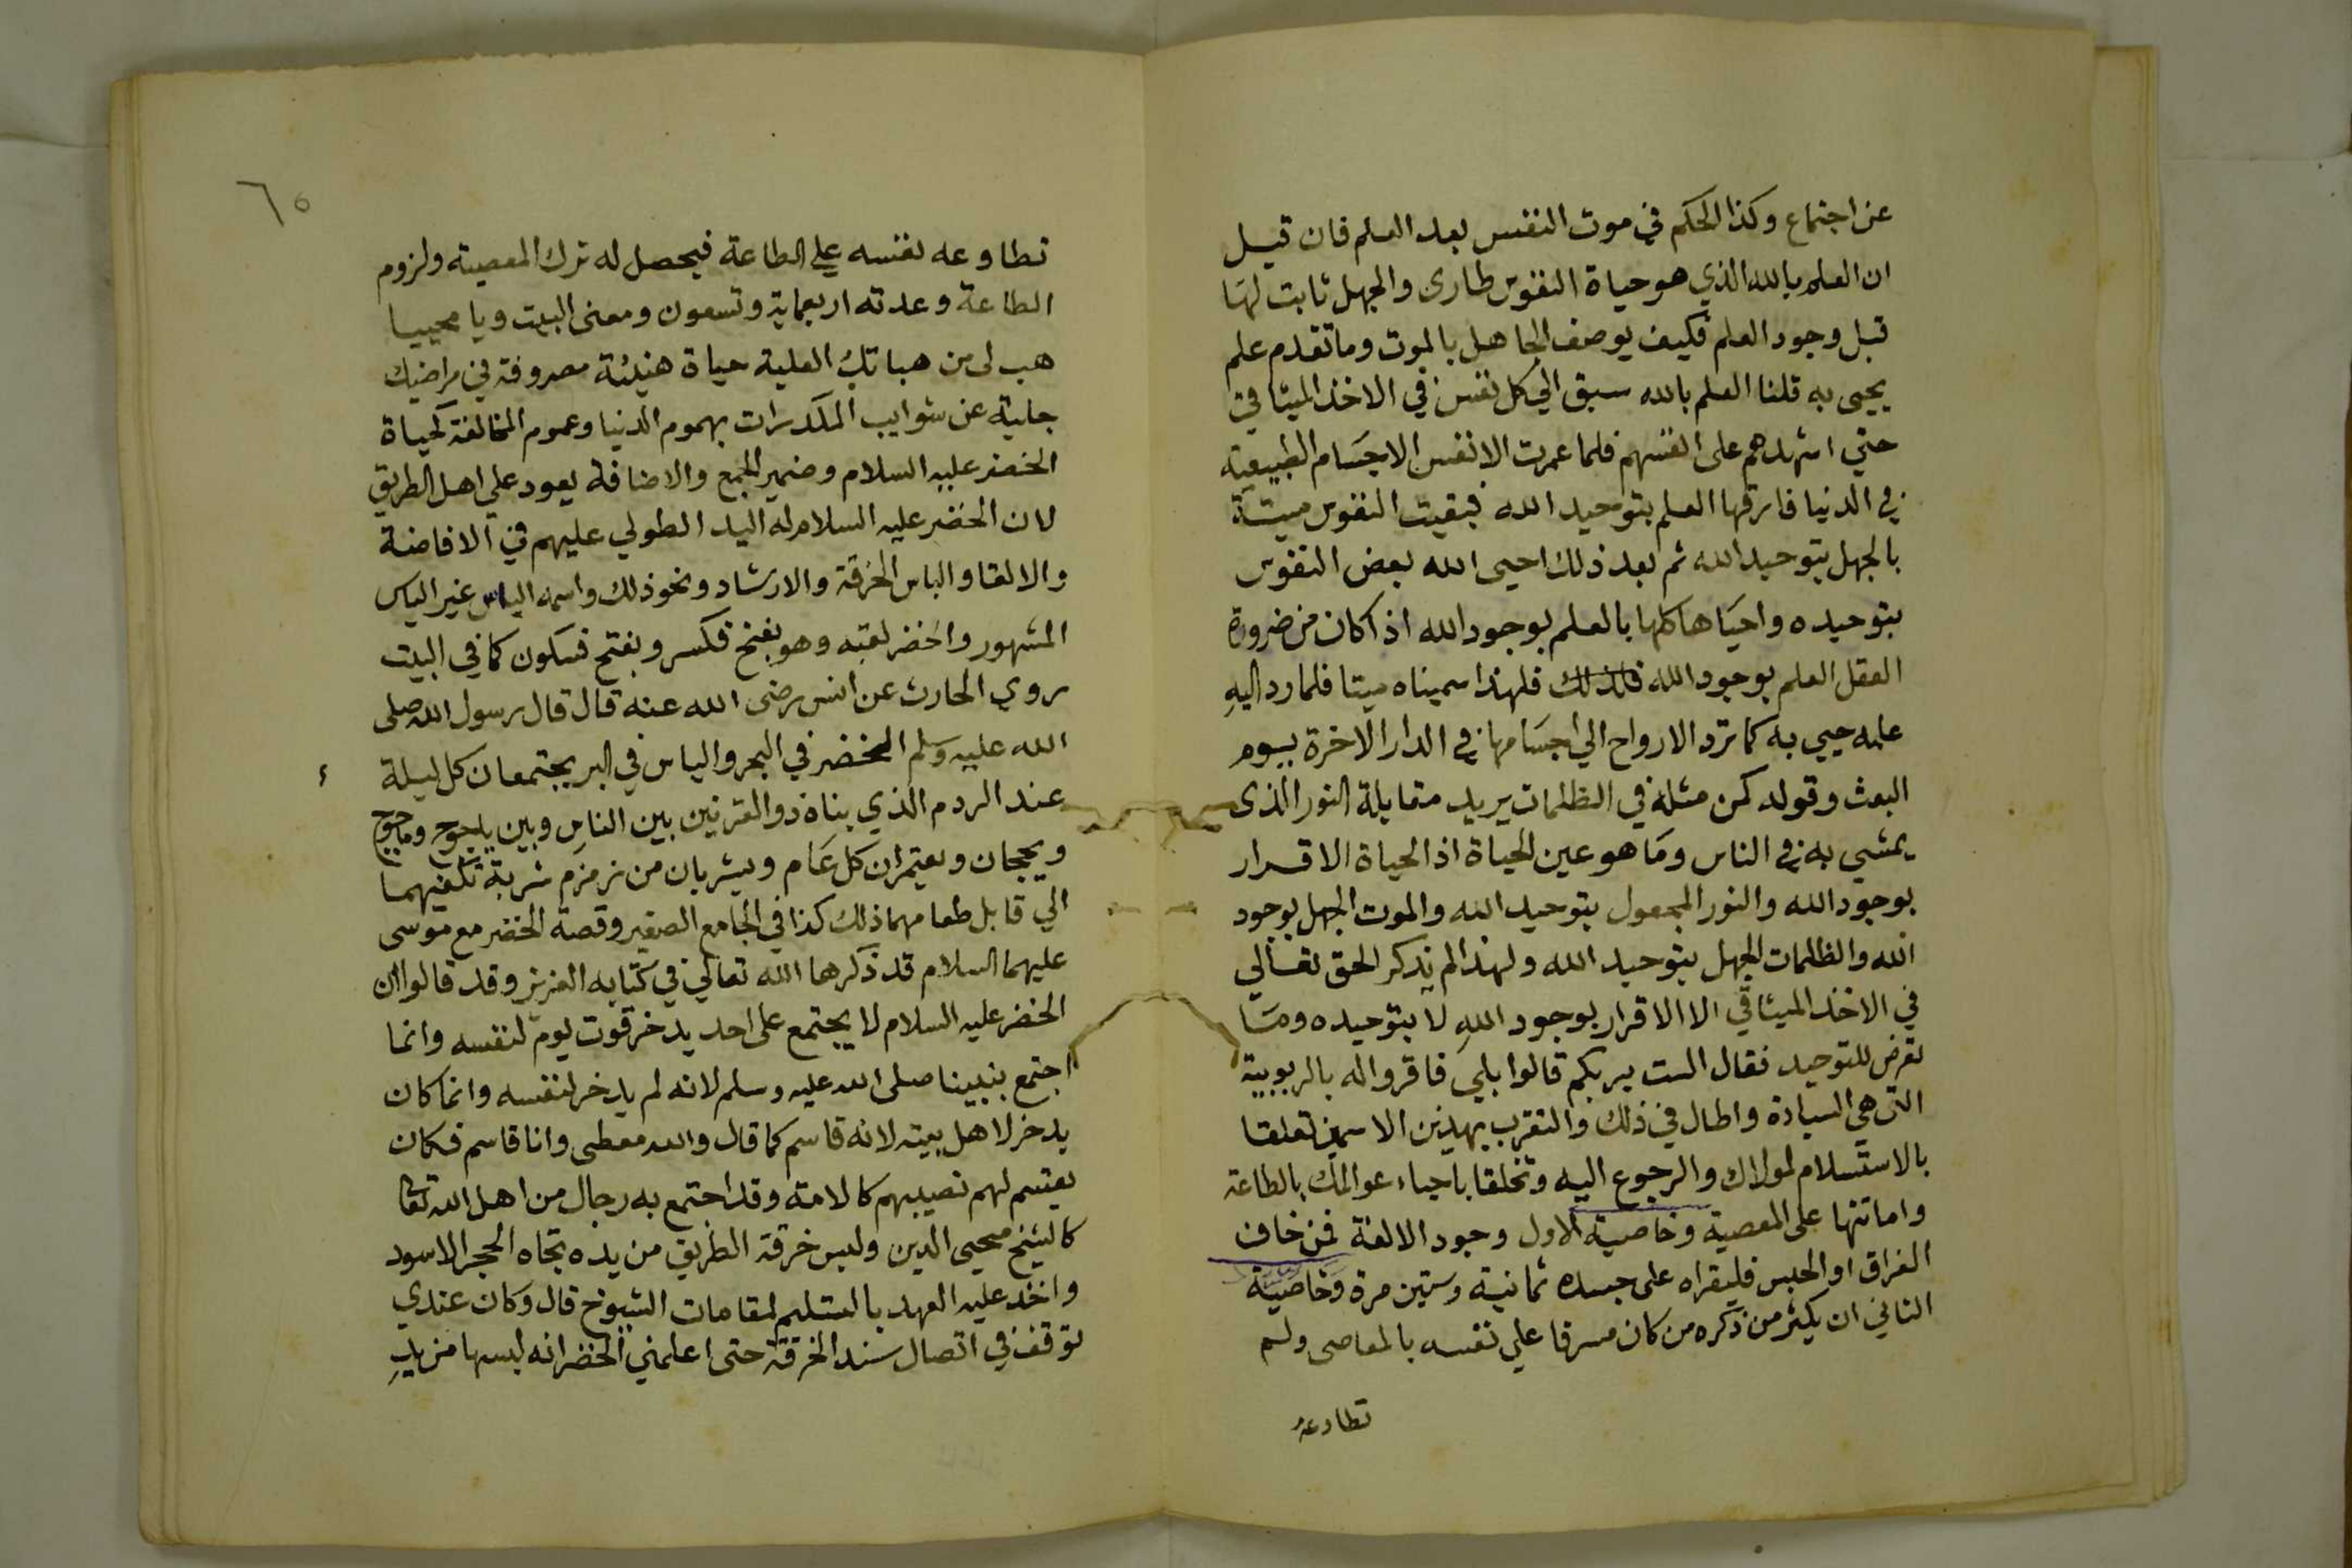 عن اجتماع وكذا الحكم في موت النفس بعد العلم فان قيل
ان العلم بالله الذي هو حياة النفوس طارى والجهل ثابت لها
قبل وجود العلم فكيف يوصف الجاهل بالموت وما تقدم علم
يحيى به قلنا العلم بالله سبق الي كل نفس في الاخذ الميثاقي
حتي اشهدهم على انفسهم فلما عمرت الانفس الاجسام الطبيعية
في الدنيا فارقها العلم بتوحيد الله فبقيت النفوس ميتة
بالجهل بتوحيد الله ثم بعد ذلك احيى الله بعض النفوس
بتوحيده واحياها كلها بالعلم بوجود الله اذ اكان من ضرورة
العقل العلم بوجود الله فلذلك فلهذا سميناه ميتا فلما رد اليه
علمه حيي به كما ترد الارواح الي اجسامها في الدار الاخرة يوم
البعث وقوله كمن مثله في الظلمات يريد مقابلة النور الذى
يمشي به في الناس وما هو عين الحياة اذ الحياة الاقرار
بوجود الله والنور المجعول بتوحيد الله والموت الجهل بوجود
الله والظلمات الجهل بتوحيد الله ولهذا لم يذكر الحق تعالي
في الاخذ الميثاقي الا الاقرار بوجود الله لا بتوحيده وما
تعرض للتوحيد فقال الست بربكم قالوا بلي فاقروا له بالربوبية
التي هي السيادة واطال في ذلك والتقرب بهذين الاسمين تعلقا
بالاستسلام لمولاك والرجوع اليه وتخلقا باحياء عوالمك بالطاعة
واماتتها على المعصية وخاصية الاول وجود الالفة فمن خاف
الفراق او الحبس فليقراه على جسده ثمانية وستين مرة وخاصية
الثاني ان يكثر من ذكره من كان مسرفا علي نفسه بالمعاصى ولم
تطاوعه
٦٥
تطاوعه نفسه علي الطاعة فيحصل له ترك المعصية ولزوم
الطاعة وعدته اربعماية وتسعون ومعنى البيت ويا محييا
هب لى من هباتك العلية حياة هنيئة مصروفة في مراضيك
جلية عن شوايب المكدرات بهموم الدنيا وعموم المخالفة كحياة
الخضر عليه السلام وضمير الجمع والاضافة يعود علي اهل الطريق
لان الخضر عليه السلام له اليد الطولي عليهم في الافاضة
والالقا والباس الخرقة والارشاد ونحو ذلك واسمه الياس غير الياس
المشهور والخضر لقبه وهو بفتح فكسر وبفتح فسكون كما في البيت
روي الحارث عن انس رضى الله عنه قال قال رسول الله صلى
الله عليه وسلم الخضر في البحر والياس في البر يجتمعان كل ليلة
عند الردم الذي بناه ذو القرنين بين الناس وبين ياجوج وماجوج
ويحجان ويعتمران كل عام ويشربان من زمزم شربة تكفيهما
الي قابل طعامهما ذلك كذا في الجامع الصغير وقصة الخضر مع موسى
عليهما السلام قد ذكرها الله تعالي في كتابه العزيز وقد قالوا ان
الخضر عليه السلام لا يجتمع على احد يدخر قوت يوم لنفسه وانما
اجتمع بنبينا صلى الله عليه وسلم لانه لم يدخر لنفسه وانما كان
يدخر لاهل بيته لانه قاسم كما قال والله معطى وانا قاسم فكان
يقسم لهم نصيبهم كالامته وقد اجتمع به رجال من اهل الله تعالى
كالشيخ محيى الدين ولبس خرقة الطريق من يده تجاه الحجر الاسود
واخذ عليه العهد بالتسليم لمقامات الشيوخ قال وكان عندي
توقف في اتصال سند الخرقة حتى اعلمني الخضر انه لبسها من يد